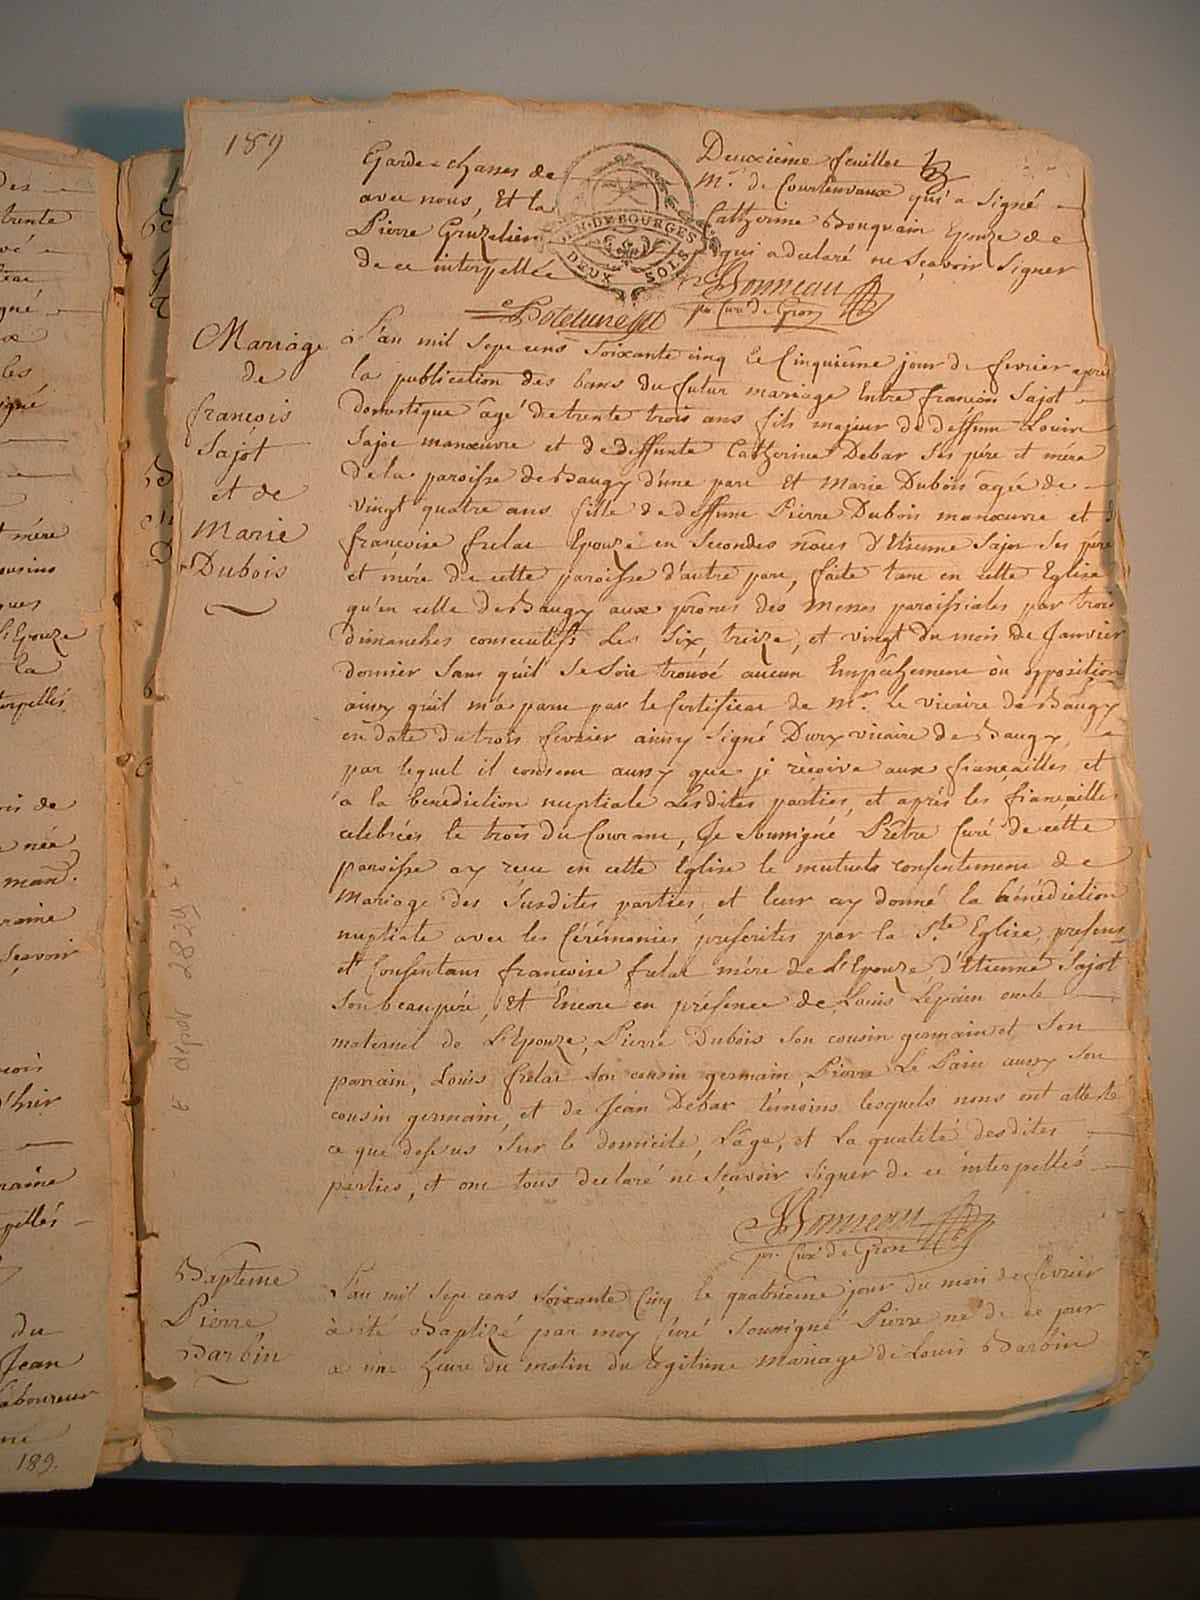 189
Deuxième feuillet
Garde-chasses de Mr. de Courtenvaux qui a signé
avec nous, Et la Catherine Bonguain Epouze de
Pierre Gruzelier qui a declaré ne sçavoir signer
GN. DE BOURGES
DEUX SOLS
de ce interpellée
Bonneau
pr. Curé de Gron
Mariage
de
françois
Sajot
et de
Marie
Dubois
L'an mil sept cens soixante cinq le Cinquième jour de fevrier après
la publication des bans du futur mariage Entre françois Sajot
domestique âgé de trente trois ans fils majeur de deffunt Louis
Sajot manœuvre et de deffunte Catherine Debar ses père et mère
de la paroisse de Baugy d'une part Et Marie Dubois agée de
vingt quatre ans fille de deffunt Pierre Dubois manœuvre et de
françoise frelat Epouze en secondes noces d'Etienne Sajot ses père
et mère de cette paroisse d'autre part, faite tant en cette Eglise
qu'en celle de Baugy aux prônes des Messes paroissiales par trois
dimanches consecutifs les six, treize, et vingt du mois de Janvier
dernier sans qu'il se soit trouvé aucun Empêchement ou opposition
ainsy qu'il m'a paru par le Certificat de Mr. le vicaire de Baugy
en date du trois fevrier ainsy signé Dury vicaire de Baugy,
par lequel il consent aussy que je reçoive aux fiançailles et
a la bénédiction nuptiale Lesdites parties, et après les fiançailles
celebrées le trois du Courant, Je soussigné Prêtre Curé de cette
paroisse ay reçu en cette Eglise le mutuel consentement de
Mariage des susdites parties, et leur ay donné la bénédiction
nuptiale avec les Cérémonies prescrites par la Ste Eglise, présens
et Consentans françoise frelat mère de l'Epouze, d'Etienne Sajot
son beaupère, Et Encore en présence de Louis Lepain oncle
maternel de l'Epouze, Pierre Dubois son cousin germain et son
parrain, Louis frelat son cousin germain, Pierre Le Pain aussy son
cousin germain, et de Jean Debar témoins lesquels nous ont attesté
ce que dessus sur le domicile, l'âge, et la qualité desdites
parties, et ont tous declaré ne sçavoir signer de ce interpellés
Bonneau
pr. Curé de Gron
Bapteme
Pierre
Barbin
L'an mil sept cens soixante Cinq le quatrième jour du mois de fevrier
à été Baptizé par moy Curé soussigné Pierre né de ce jour
a une heure du matin du légitime mariage de Louis Barbin
189.